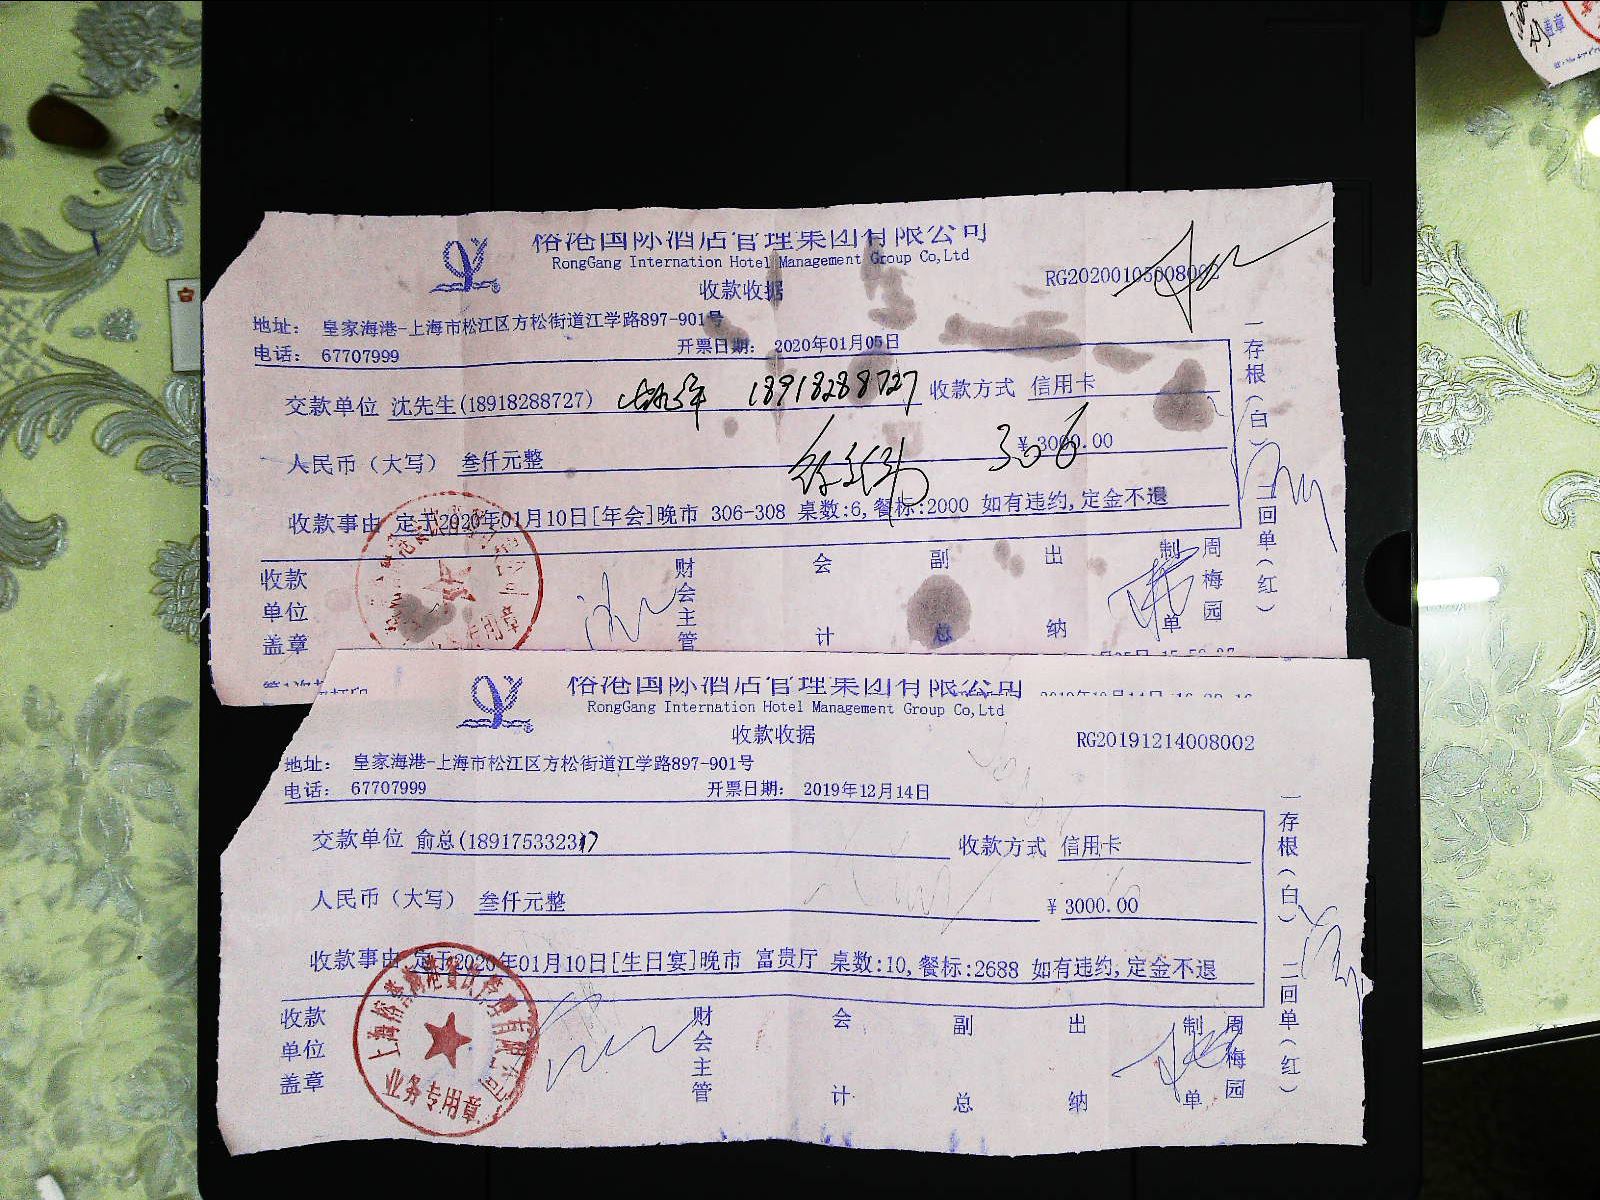 榕港国际酒店管理集团有限公司
RongGang Internation Hotel Management Group Co,Ltd
收款收据
RG20200105008002
地址： 皇家海港-上海市松江区方松街道江学路897-901号
电话： 67707999
开票日期： 2020年01月05日
交款单位 沈先生(18918288727) 18918288727 收款方式 信用卡
人民币（大写） 叁仟元整 306 ￥3000.00
收款事由 定于2020年01月10日[年会]晚市 306-308 桌数:6,餐标:2000 如有违约,定金不退
收款单位盖章 财会主管 会计 副总 出纳 制单 周梅园
一存根（白） 二回单（红）
业务专用章
榕港国际酒店管理集团有限公司
RongGang Internation Hotel Management Group Co,Ltd
收款收据
RG20191214008002
地址： 皇家海港-上海市松江区方松街道江学路897-901号
电话： 67707999
开票日期： 2019年12月14日
交款单位 俞总(18917533237 收款方式 信用卡
人民币（大写） 叁仟元整 ￥3000.00
收款事由 定于2020年01月10日[生日宴]晚市 富贵厅 桌数:10,餐标:2688 如有违约,定金不退
收款单位盖章 财会主管 会计 副总 出纳 制单 周梅园
一存根（白） 二回单（红）
业务专用章